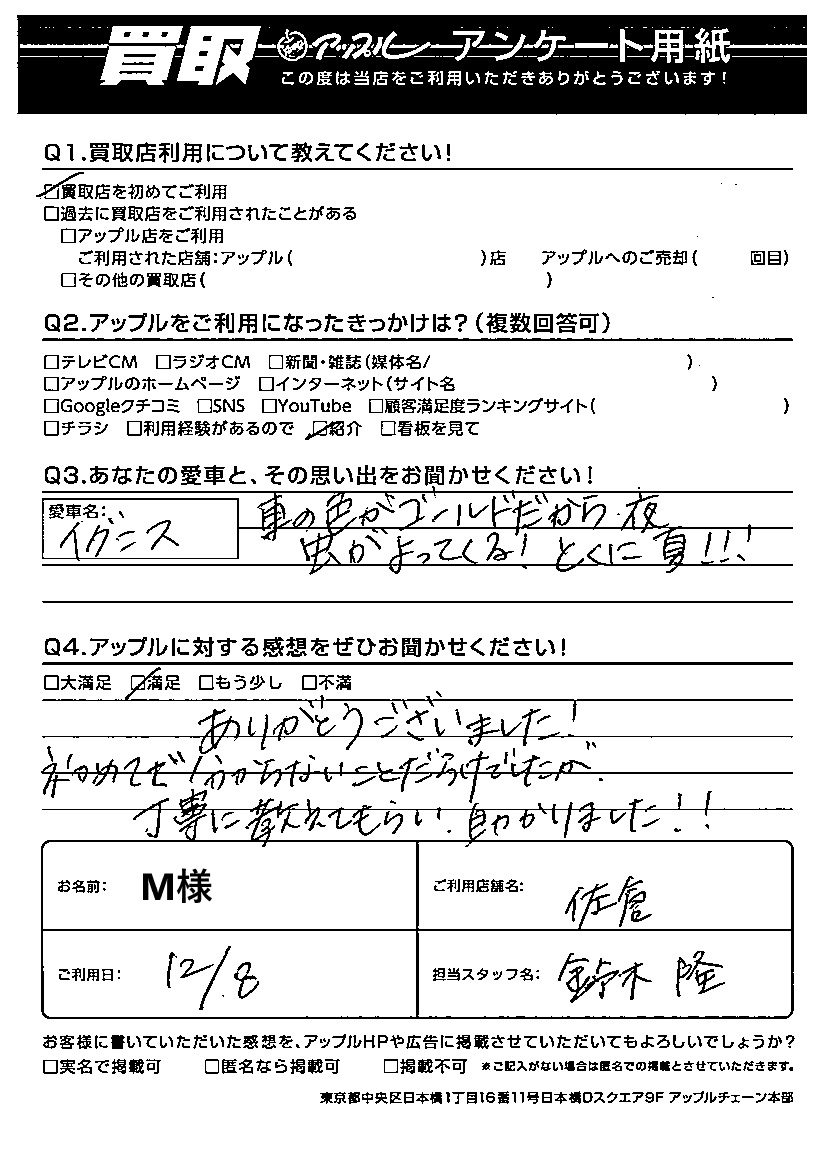 買取 アップル アンケート用紙
この度は当店をご利用いただきありがとうございます!
Q1.買取店利用について教えてください!
☑買取店を初めてご利用
□過去に買取店をご利用されたことがある
□アップル店をご利用
ご利用された店舗:アップル( )店 アップルへのご売却( 回目)
□その他の買取店( )
Q2.アップルをご利用になったきっかけは?(複数回答可)
□テレビCM □ラジオCM □新聞・雑誌(媒体名/ )
□アップルのホームページ □インターネット(サイト名 )
□Googleクチコミ □SNS □YouTube □顧客満足度ランキングサイト( )
□チラシ □利用経験があるので ☑紹介 □看板を見て
Q3.あなたの愛車と、その思い出をお聞かせください!
愛車名:
イグニス
車の色がゴールドだから夜
虫がよってくる! とくに夏!!!
Q4.アップルに対する感想をぜひお聞かせください!
□大満足 ☑満足 □もう少し □不満
ありがとうございました!
初めてで分からないことだらけでしたが、
丁寧に教えてもらい、助かりました!!
お名前: M様
ご利用店舗名: 佐倉
ご利用日: 12/8
担当スタッフ名: 鈴木 隆
お客様に書いていただいた感想を、アップルHPや広告に掲載させていただいてもよろしいでしょうか?
□実名で掲載可 □匿名なら掲載可 □掲載不可 ※ご記入がない場合は匿名での掲載とさせていただきます。
東京都中央区日本橋1丁目16番11号日本橋Dスクエア9F アップルチェーン本部